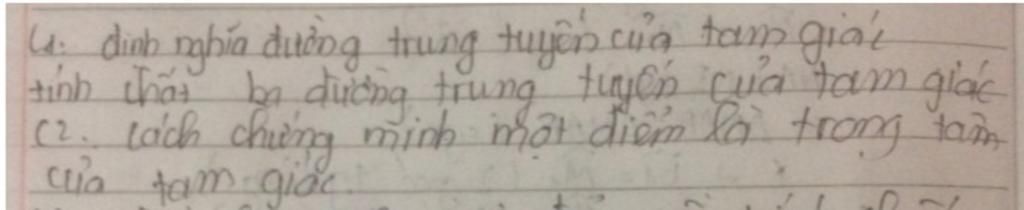 C1: định nghĩa đường trung tuyến của tam giác
tính chất ba đường trung tuyến của tam giác
C2. cách chứng minh một điểm là trọng tâm
của tam giác.